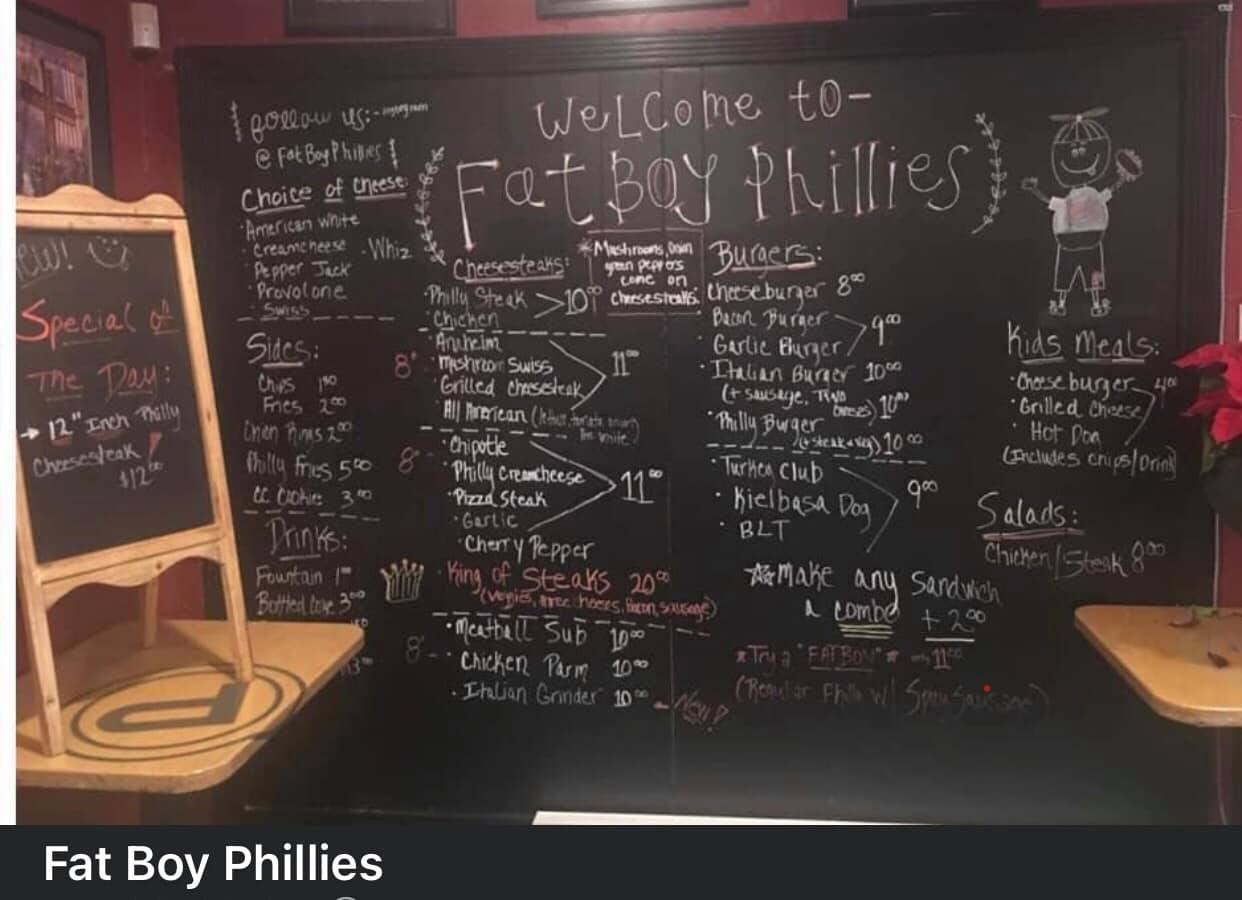 Follow us:- Instagram
@ FatBoyPhillies
Choice of Cheese:
· American White
· Creamcheese
· Whiz
· Pepper Jack
· Provolone
· Swiss
Sides:
Chips 150
Fries 200
Onion Rings 200
Philly Fries 500
CC Cookie 300
Drinks:
Fountain 1
Bottled Coke 300
WeLCome to-
Fat Boy Phillies
Cheesesteaks:
* Mushrooms, Onion
green peppers
come on
cheesesteaks.
· Philly Steak > 1000
· Chicken
· Anaheim
8" · Mushroom Swiss 1100
· Grilled Cheesesteak
All American
· Chipotle
8" · Philly Creamcheese 1100
· Pizza Steak
· Garlic
· Cherry Pepper
· King of Steaks 2000
(Vegies, three cheeses, Bacon, sausage)
· Meatball Sub 1000
8" - · Chicken Parm 1000
· Italian Grinder 1000 - New!
Burgers:
Cheeseburger 800
Bacon Burger
· Garlic Burger 900
· Italian Burger 1000
(+ sausage, Two cheeses) 1000
· Philly Burger
(+ steak + veg) 1000
· Turkey Club
· Kielbasa Dog 900
· BLT
Make any Sandwich
a combo + 200
* Try a "FATBOY" * only 1100
(Regular Philly w/ Spicy Sausage)
Kids Meals:
· Cheeseburger 400
· Grilled Cheese
· Hot Dog
(Includes chips/Drink)
Salads:
Chicken/Steak 800
Special of
The Day:
→ 12" Inch Philly
Cheesesteak!
$1200
Fat Boy Phillies